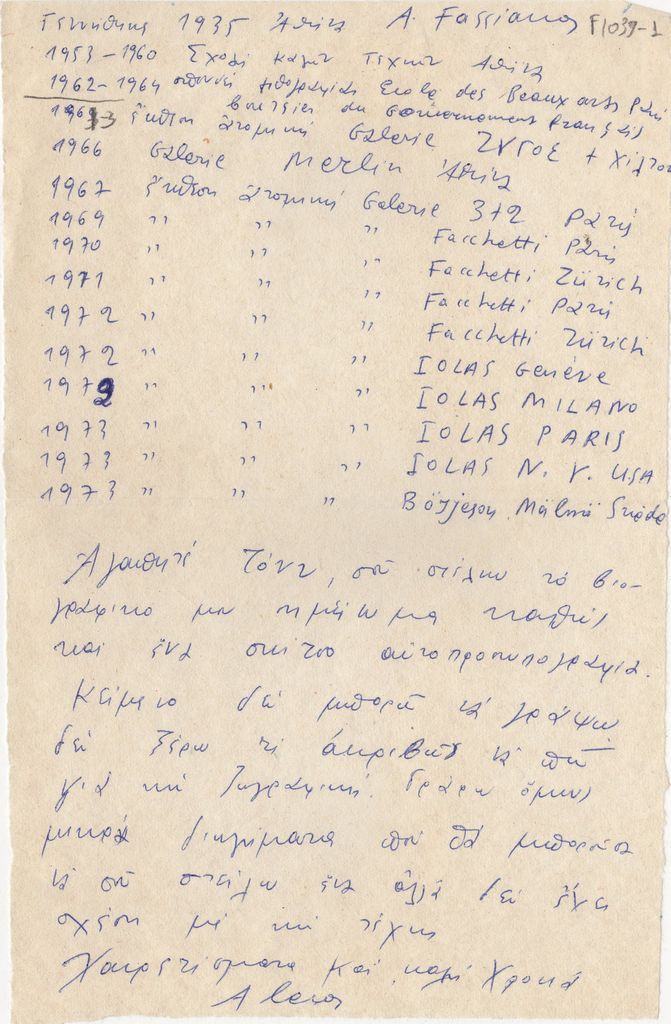 Γεννήθηκε 1935 Ἀθήνα A. Fassianos F1039-1
1953-1960 Σχολή Καλών Τεχνών Αθήνα
1962-1964 σπουδές λιθογραφίας Ecole des Beaux arts Paris
boursier du Gouvernement Français
1963 ἔκθεση ἀτομική Galerie ΖΥΓΟΣ + Χίλτον
1966 Galerie Merlin Ἀθήνα
1967 ἔκθεση ἀτομική Galerie 3+2 Paris
1969 " " " Facchetti Paris
1970 " " " Facchetti Zürich
1971 " " " Facchetti Paris
1972 " " " Facchetti Zürich
1972 " " " IOLAS Genève
1972 " " " IOLAS MILANO
1973 " " " IOLAS PARIS
1973 " " " IOLAS N. Y. USA
1973 " " " Börjeson Malmö Suède
Ἀγαπητέ Τώνη, σοῦ στέλνω τό βιο-
γραφικό μου σημείωμα καθώς
και ἕνα σκίτσο αὐτοπροσωπογραφία.
Κείμενο δέν μπορῶ νά γράψω
δέν ξέρω τί ἀκριβῶς νά πῶ
γιά τήν ζωγραφική. Γράφω ὅμως
μικρά διηγήματα πού θά μποροῦσα
νά σοῦ στείλω ἕνα ἀλλά δέν ἔχει
σχέση μέ τήν τέχνη
Χαιρετίσματα καί καλή χρονιά
Alecos